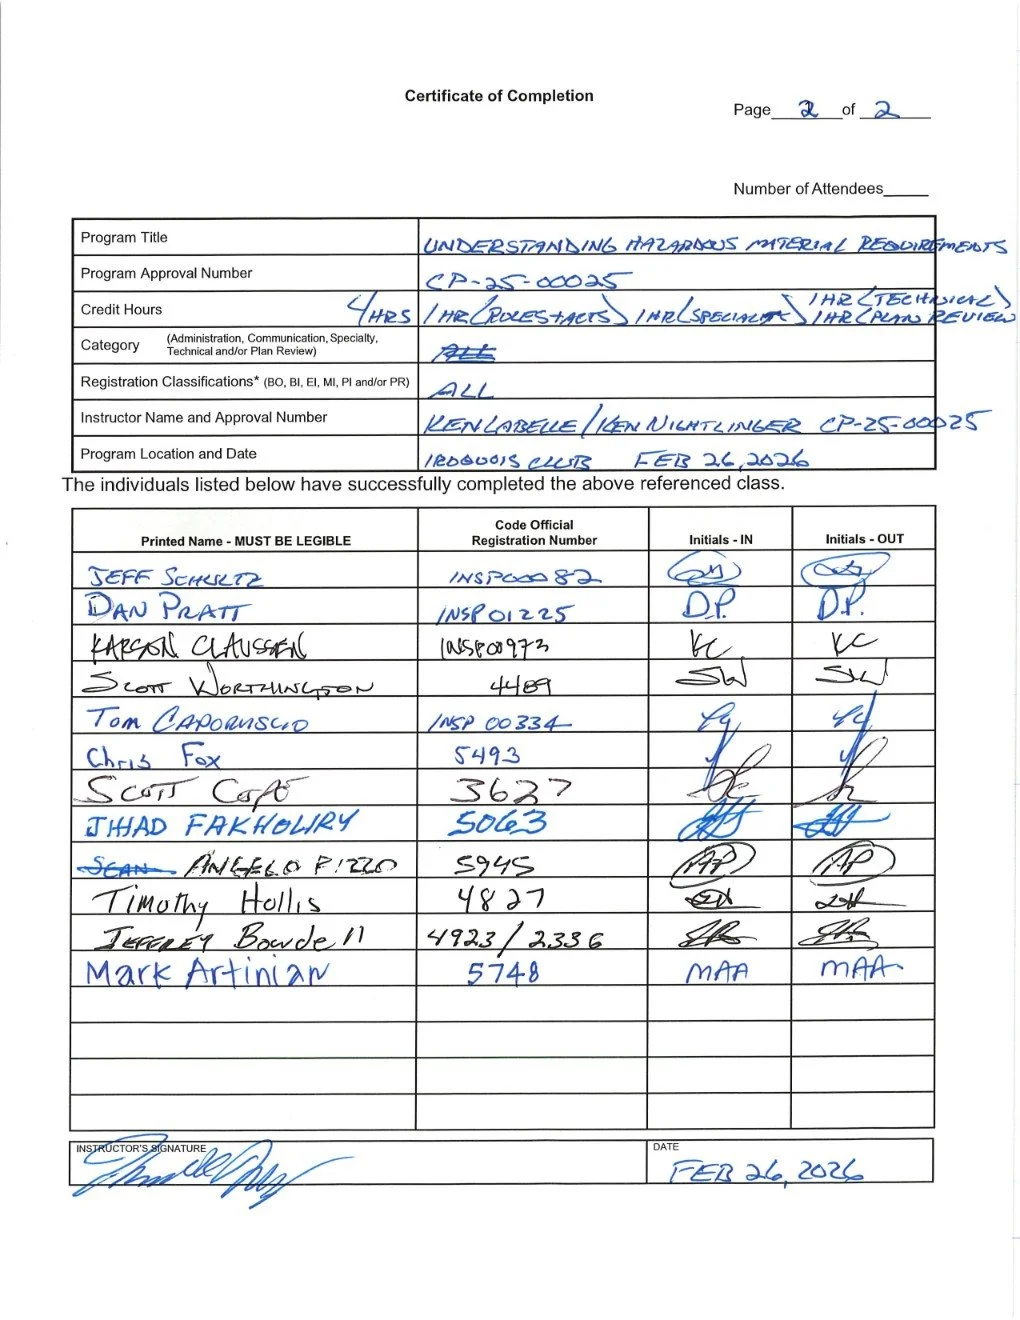 Certificate of Completion
Page 2 of 2
Number of Attendees
Program Title UNDERSTANDING HAZARDOUS MATERIAL REQUIREMENTS
Program Approval Number CP-25-00025
1HR (TECHNICAL)
Credit Hours 4HRS 1HR (RULES+ACTS) 1HR (SPECIALTY) 1HR (PLAN REVIEW
Category (Administration, Communication, Specialty, Technical and/or Plan Review) ALL
Registration Classifications* (BO, BI, EI, MI, PI and/or PR) ALL
Instructor Name and Approval Number KEN LABELLE / KEN NIGHTLINGER CP-25-00025
Program Location and Date IROQUOIS CLUB FEB 26, 2026
The individuals listed below have successfully completed the above referenced class.
Printed Name - MUST BE LEGIBLE Code Official Registration Number Initials - IN Initials - OUT
JEFF SCHULTZ INSP00082
DAN PRATT INSP01225 D.P. D.P.
KARSON CLAUSSEN INSP00973 KC KC
SCOTT WORTHINGTON 4489 SW SW
TOM CAPORUSCIO INSP 00334
Chris Fox 5493
SCOTT 3627
JIHAD FAKHOURY 5063
SEAN ANGELO RIZZO 5945 AP AP
Timothy Hollis 4827
JEFFREY Bowdell 4923/2336
Mark Artinian 5748 MAA MAA
INSTRUCTOR'S SIGNATURE DATE FEB 26, 2026